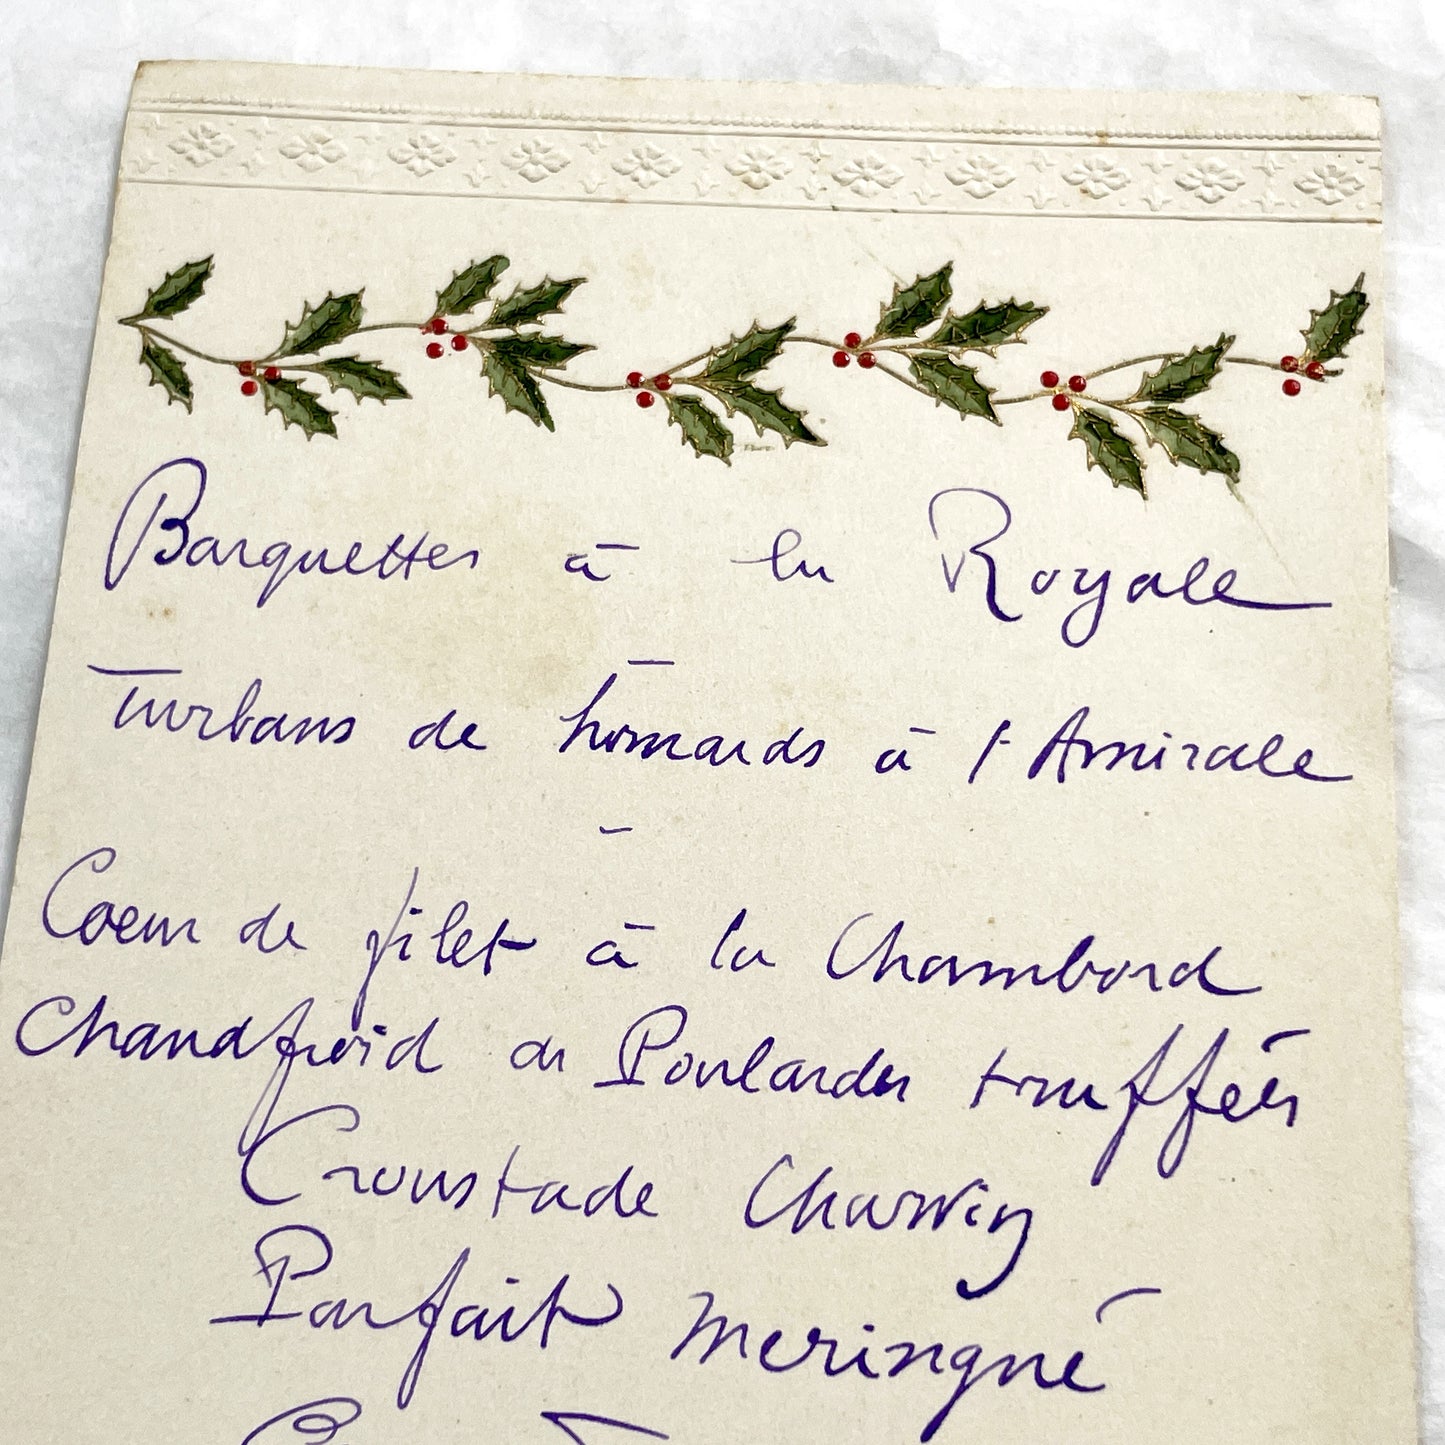 Barquettes à la Royale
Turbans de homards à l'Amirale
Coeur de filet à la Chambord
Chaudfroid de Poulardes truffées
Croustade
Parfait meringué